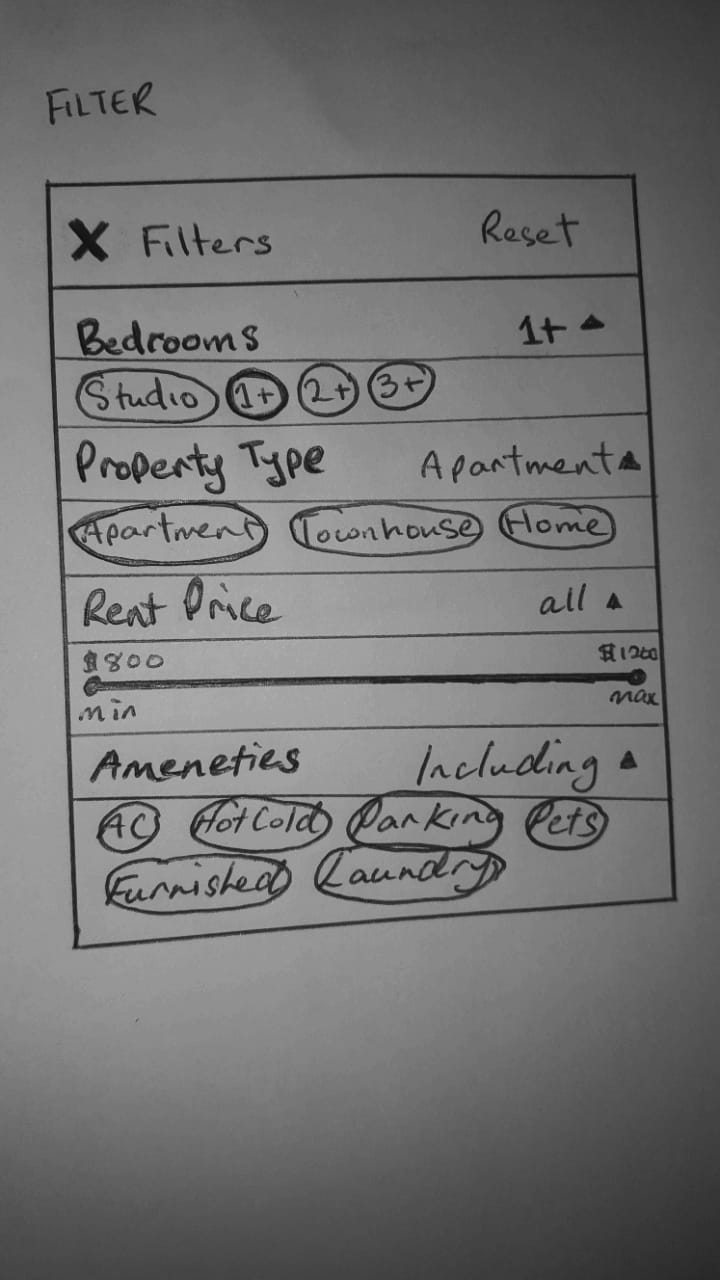 FILTER
X Filters Reset
Bedrooms 1+ ▲
Studio 1+ 2+ 3+
Property Type Apartment ▲
Apartment Townhouse Home
Rent Price all ▲
$800 $1200
min max
Ameneties Including ▲
AC Hot Cold Parking Pets
Furnished Laundry